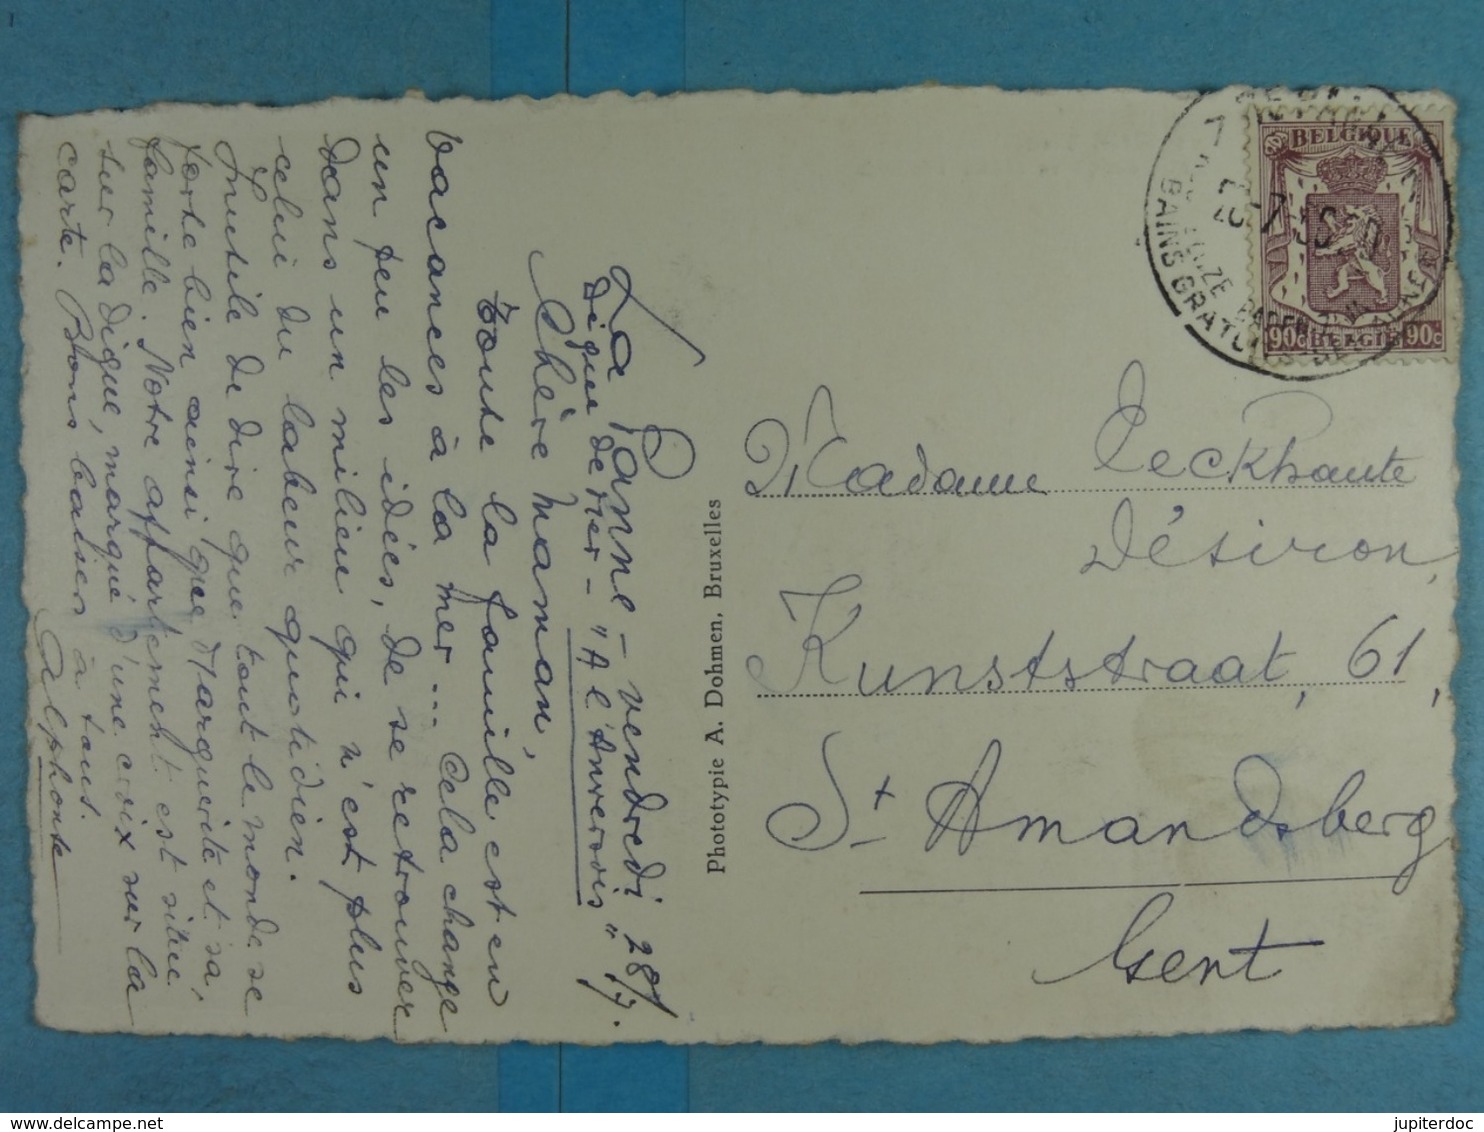 La Panne – vendredi 28/7.
Digue de Mer – "A l'Anversois"
Chère Maman,
Toute la famille est en
vacances à la mer... Cela change
un peu les idées, de se retrouver
dans un milieu qui n'est plus
celui du labeur quotidien.
Inutile de dire que tout le monde se
porte bien ainsi que Marguerite et sa
famille. Notre appartement est situé
sur la digue, marqué d'une croix sur la
carte. Bons baisers à tous.
Alphonse
Phototypie A. Dohmen, Bruxelles
BELGIQUE
90c BELGIE 90c
BAINS GRATUITS
Madame Teckhaute
Désiron,
Kunststraat, 61,
St Amandsberg
Gent
www.delcampe.net
jupiterdoc